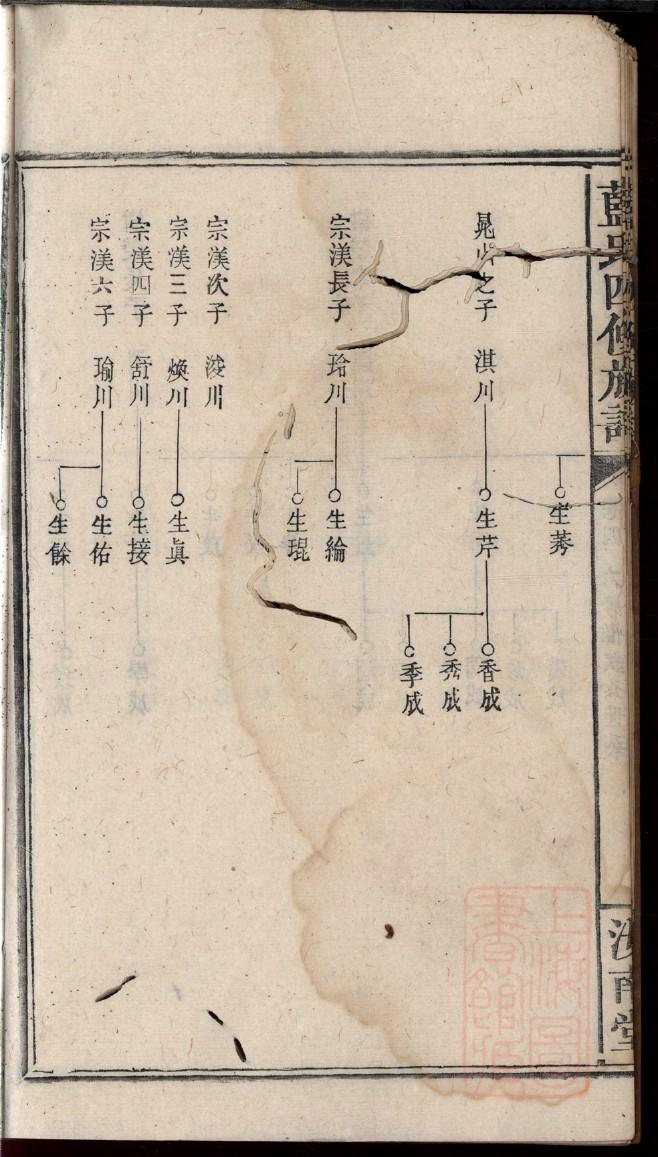 藍氏四修族譜
汝南堂
生莠
晁山之子 淇川
生芹
香成
秀成
季成
宗渼長子 琀川
生綸
生琨
宗渼次子 浚川
宗渼三子 煥川
生眞
宗渼四子 舒川
生接
宗渼六子 瑜川
生佑
生餘
上海圖書館藏